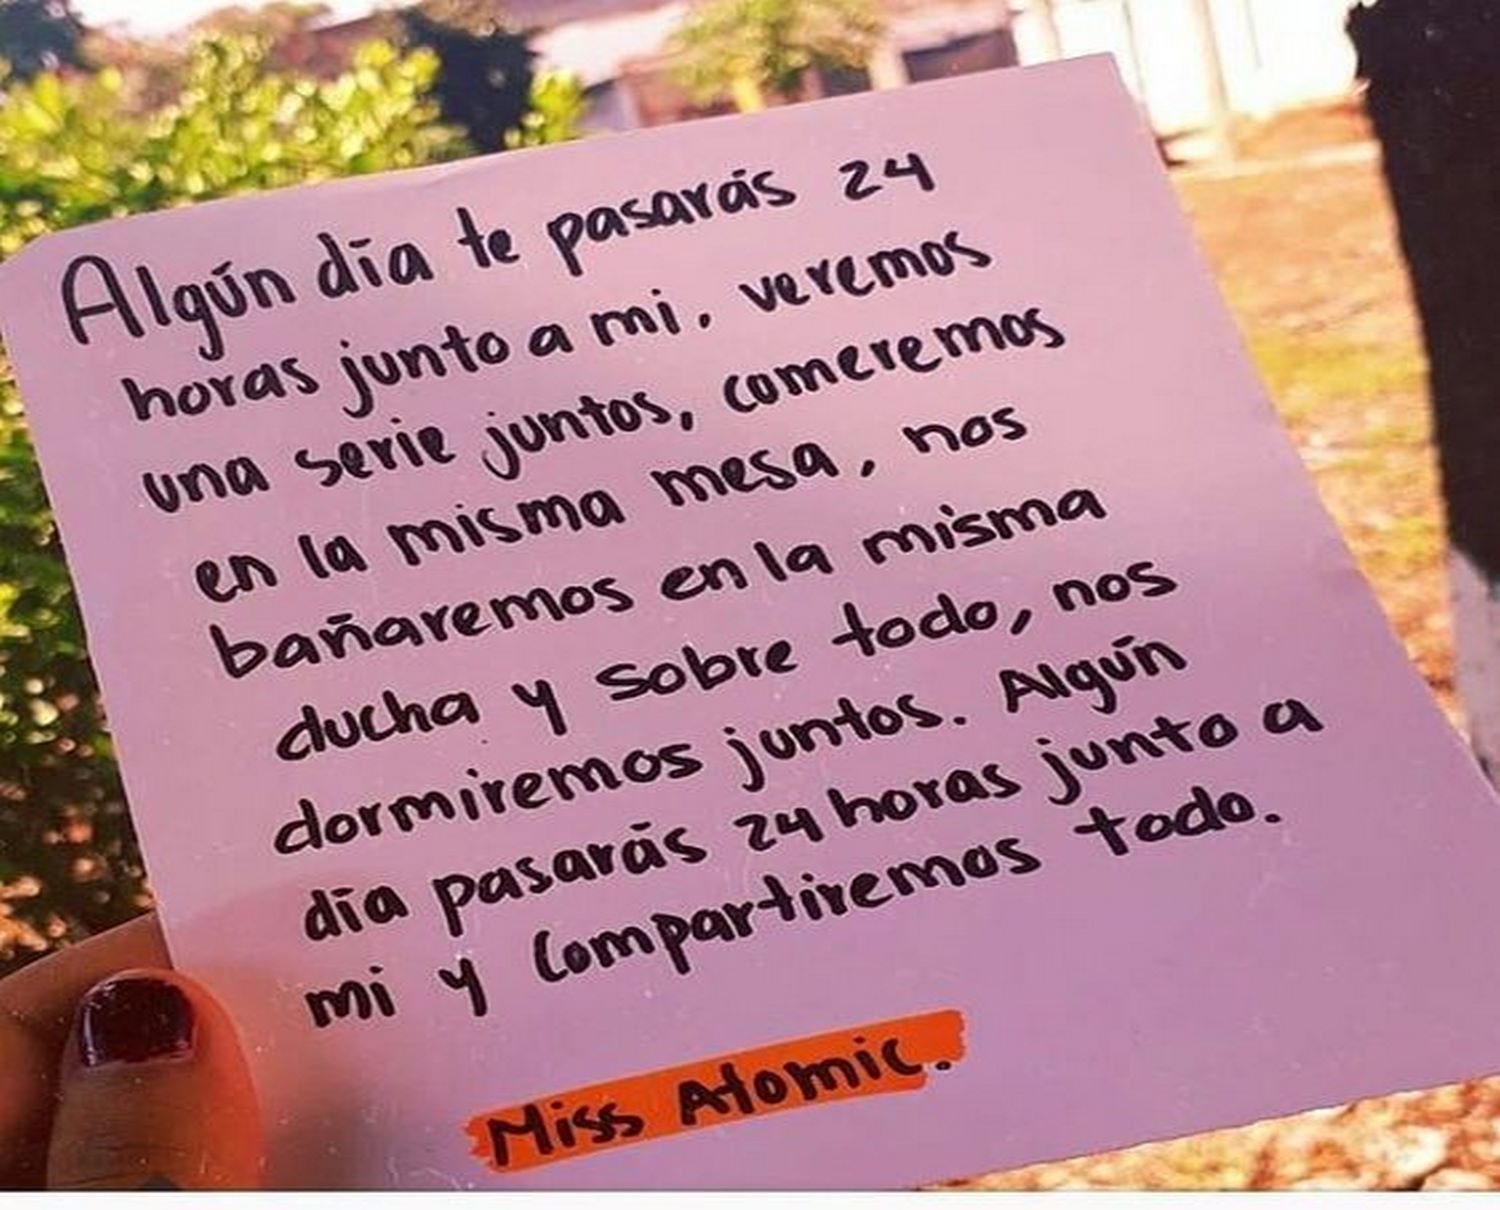 Algún día te pasarás 24
horas junto a mi, veremos
una serie juntos, comeremos
en la misma mesa, nos
bañaremos en la misma
ducha y sobre todo, nos
dormiremos juntos. Algún
día pasarás 24 horas junto a
mi y compartiremos todo.
Miss Atomic.